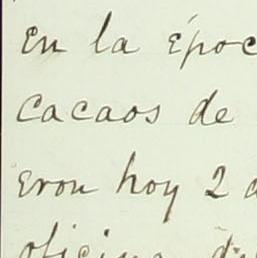 En la époc
Cacaos de
eron hoy 2 d
oficina d